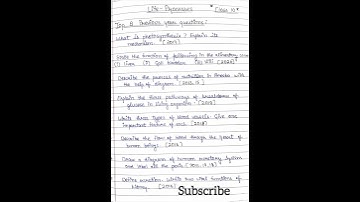 Life - Processes * Class 10 *
Imp. & Previous year questions:
What is photosynthesis? Explain its
mechanism. (2017)
State the function of following in the alimentary
(1) Liver (2) Gall bladder (3) Villi (2020)
Describe the process of nutrition in Amoeba with
the help of diagram.
Explain the three pathways of breakdown of
glucose in living organism.
Write three types of blood vessels. Give one
important feature of each.
Describe the flow of blood through the heart of
human beings.
Draw a diagram of human excretory system
and the parts
Define excretion. Write two vital functions of
kidney.
Subscribe